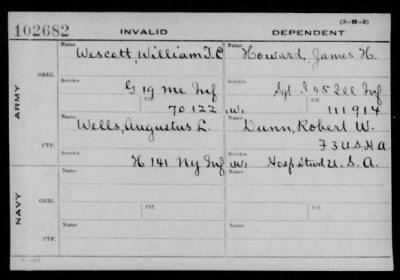 (3-H-5)
102682 INVALID DEPENDENT
Name Name
Wescott, William T. C Howard, James H.
ARMY
ORIG.
Service Service
G 19 Me Inf Sgt. I 45 Ill Inf
Ctf. Ctf.
70122 W. 111914
Name Name
Wells, Augustus L. Dunn, Robert W.
CTF.
F 3 U.S.H.A.
Service Service
H 141 Ny Inf W. Hosp Stwd U. S. A.
NAVY
Name Name
ORIG.
Service Ctf. Service Ctf.
Name Name
CTF.
Service Service